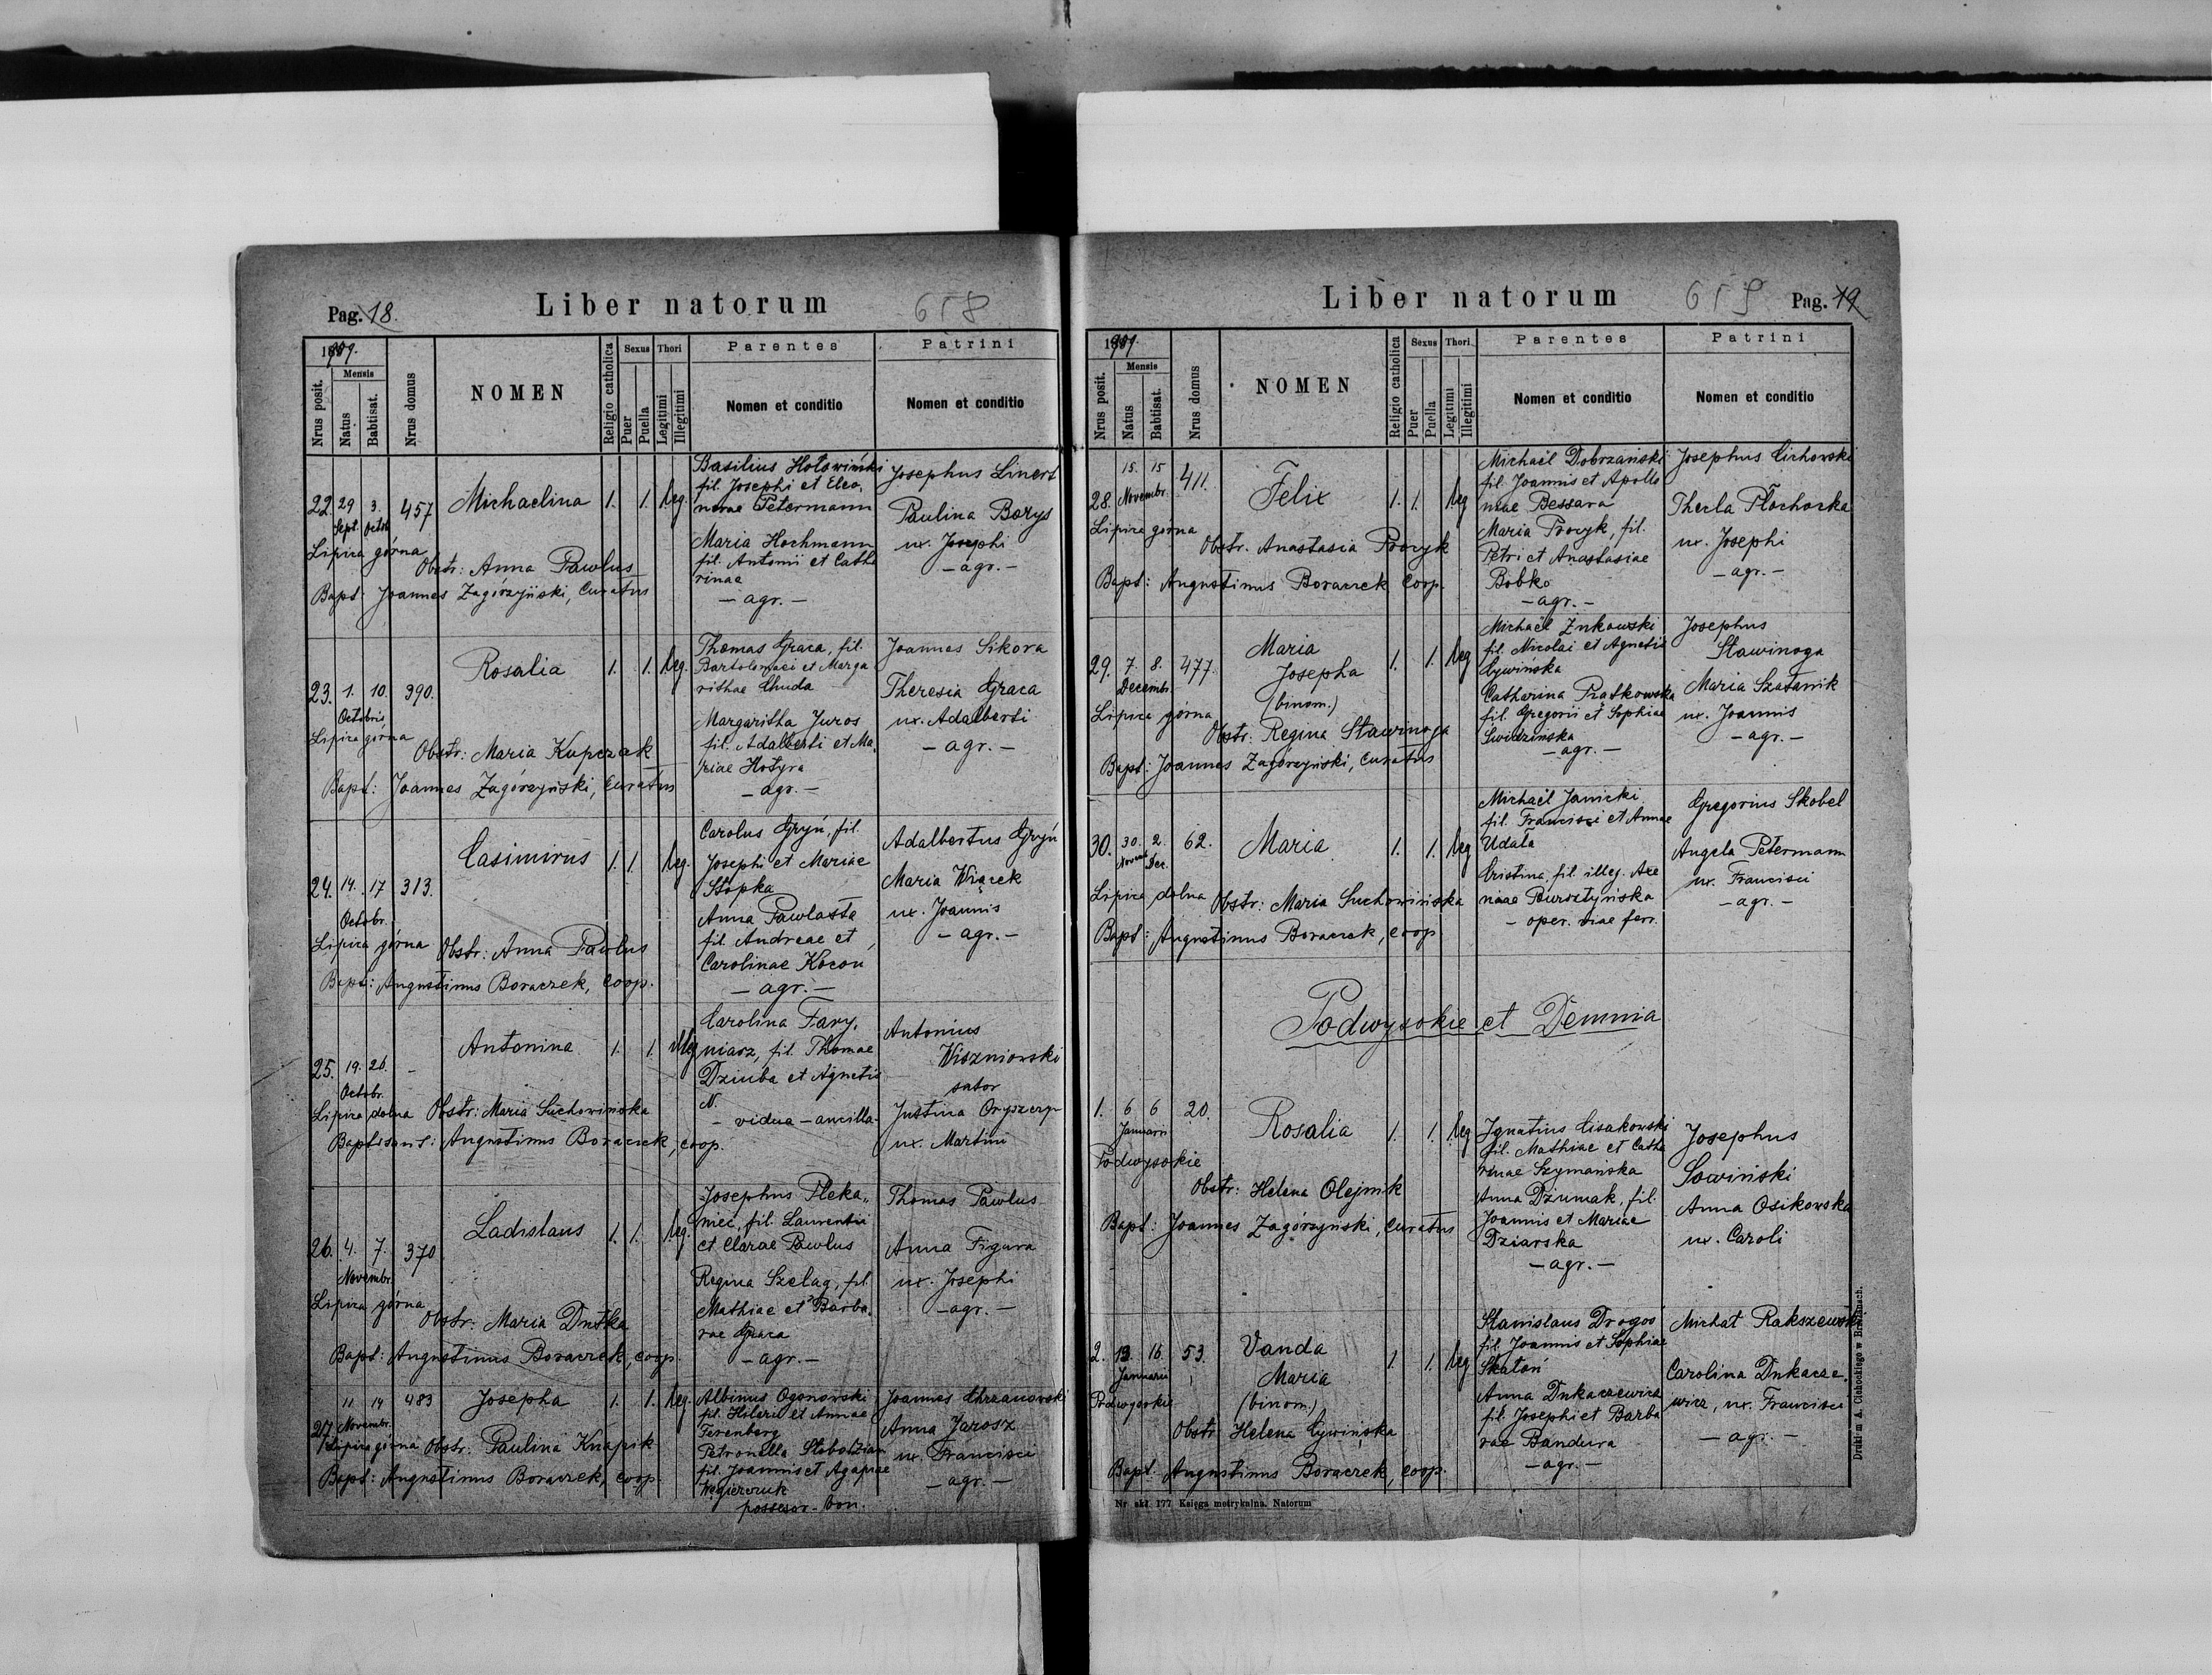 Pag. 18.
Liber natorum
658
1909.
Nrus posit.
Mensis
Natus
Babtisat.
Nrus domus
NOMEN
Religio catholica
Sexus
Puer
Puella
Thori
Legitimi
Illegitimi
Parentes
Nomen et conditio
Patrini
Nomen et conditio
22. 29 Sept. 3. Octob. 457 Michaelina 1. 1. 1leg.
Lipica górna
Obstr: Anna Pawlus
Bapt: Joannes Zagórzyński, Curatus
Basilius Hołowiński
fil. Josephi et Eleo,
norae Petermann
Maria Hochmann
fil. Antonii et Catha
rinae
- agr. -
Josephus Linert
Paulina Borys
ux. Josephi
- agr. -
23. 1. 10. Octobris, 390. Rosalia 1. 1. 1leg.
Lipica górna
Obstr: Maria Kupczak
Bapt: Joannes Zagórzyński, Curatus
Thomas Graca, fil.
Bartolomaei et Marga
rithae Chuda
Margaritha Juros
fil. Adalberti et Ma,
riae Hołyra
- agr. -
Joannes Sikora
Theresia Graca
ux. Adalberti
- agr. -
24. 14. 17 Octobr. 313. Casimirus 1. 1. 1leg.
Lipica górna Obstr: Anna Pawlus
Bapt: Augustinus Boraczek, coop.
Carolus Gryń, fil.
Josephi et Mariae
Stopka
Anna Pawlasta
fil. Andreae et
Carolinae Kocon
- agr. -
Adalbertus Gryń
Maria Wiącek
ux. Joannis
- agr. -
25. 19. 26. Octobr. - Antonina 1. 1. illeg
Lipica dolna Obstr: Maria Suchowińska
Baptisans: Augustinus Boraczek, coop.
Carolina Fary,
niarz, fil. Thomae
Dziuba et Agnetis
N.
- vidua - ancilla -
Antonius
Wiszniowski
sutor
Justina
ux. Martini
26. 4. 7. Novembr. 370 Ladislaus 1. 1. 1leg.
Lipica górna
Obstr: Maria Dutka
Bapt: Augustinus Boraczek, coop.
Josephus Pleka,,
niec, fil. Laurentii
et Clarae Pawlus
Regina Szelag, fil.
Mathiae et Barba,
rae Graca
- agr. -
Thomas Pawlus
Anna Figura
ux. Josephi
- agr. -
27. 11 14 Novembr. 483 Josepha 1. 1. 1leg.
Lipica górna Obstr: Paulina Knapik
Bapt: Augustinus Boraczek, coop.
Albinus Ogonowski
fil. Hilarii et Annae
Ferenberg
Petronella
fil. Joannis et Agapiae
Węgierczuk
possesor - bon.
Joannes Chrzanowski
Anna Jarosz
ux. Francisci
- agr. -
Liber natorum
659
Pag. 19
1909.
Nrus posit.
Mensis
Natus
Babtisat.
Nrus domus
NOMEN
Religio catholica
Sexus
Puer
Puella
Thori
Legitimi
Illegitimi
Parentes
Nomen et conditio
Patrini
Nomen et conditio
28. 15. 15 Novembr. 411. Felix 1. 1. 1leg
Lipica górna
Obstr. Anastasia Procyk
Bapt: Augustinus Boraczek coop.
Michaël Dobrzański
fil. Joannis et Apollo
niae Bessara
Maria Procyk, fil.
Petri et Anastasiae
Bobko
- agr. -
Josephus Cichowski
Thecla Płochocka
ux. Josephi
- agr. -
29. 7. 8. Decembr. 477. Maria
Josepha
(binom.) 1. 1. 1leg
Lipica górna
Obstr: Regina Stawinoga
Bapt: Joannes Zagórzyński, Curatus
Michaël Żukowski
fil. Nicolai et Agnetis
Cywińska
Catharina Piątkowska
fil. Gregorii et Sophiae
Swidzinska
- agr. -
Josephus
Stawinoga
Maria Szafarnik
ux. Joannis
- agr. -
30. 30. Novemb. 2. Dec. 62. Maria 1. 1. 1leg
Lipica dolna Obstr: Maria Suchowińska
Bapt: Augustinus Boraczek, coop
Michaël Janicki
fil. Francisci et Annae
Udała
Cristina, fil. illeg. Axe
niae Bursztyńska
- oper. viae ferr.
Gregorius Skobel
Angela Petermann
ux. Francisci
- agr. -
Podwysokie et Demnia
1. 6 6 Januarii 20. Rosalia 1. 1. 1leg
Podwysokie
Obstr: Helena Olejnik
Bapt: Joannes Zagórzyński, curatus
Ignatius Lisakowski
fil. Mathiae et Catha
rinae Szymańska
Anna Dziumak, fil.
Joannis et Mariae
Dziarska
- agr. -
Josephus
Sowiński
Anna Osikowska
ux. Caroli
2. 13. 16. Januarii 53. Vanda
Maria
(binom.) 1. 1. 1leg
Podwysokie
Obstr Helena Cywińska
Bapt. Augustinus Boraczek, coop.
Stanislaus Drogoś
fil. Joannis et Sophiae
Skałoń
Anna Dukaczewicz
fil. Josephi et Barba
rae Bandura
- agr. -
Michał Rakszewski
Carolina Dukacze,
wicz, ux. Francisci
- agr. -
Nr skł. 177 Księga metrykalna. Natorum
Druki m A. Cichockiego w Brzeżanach.